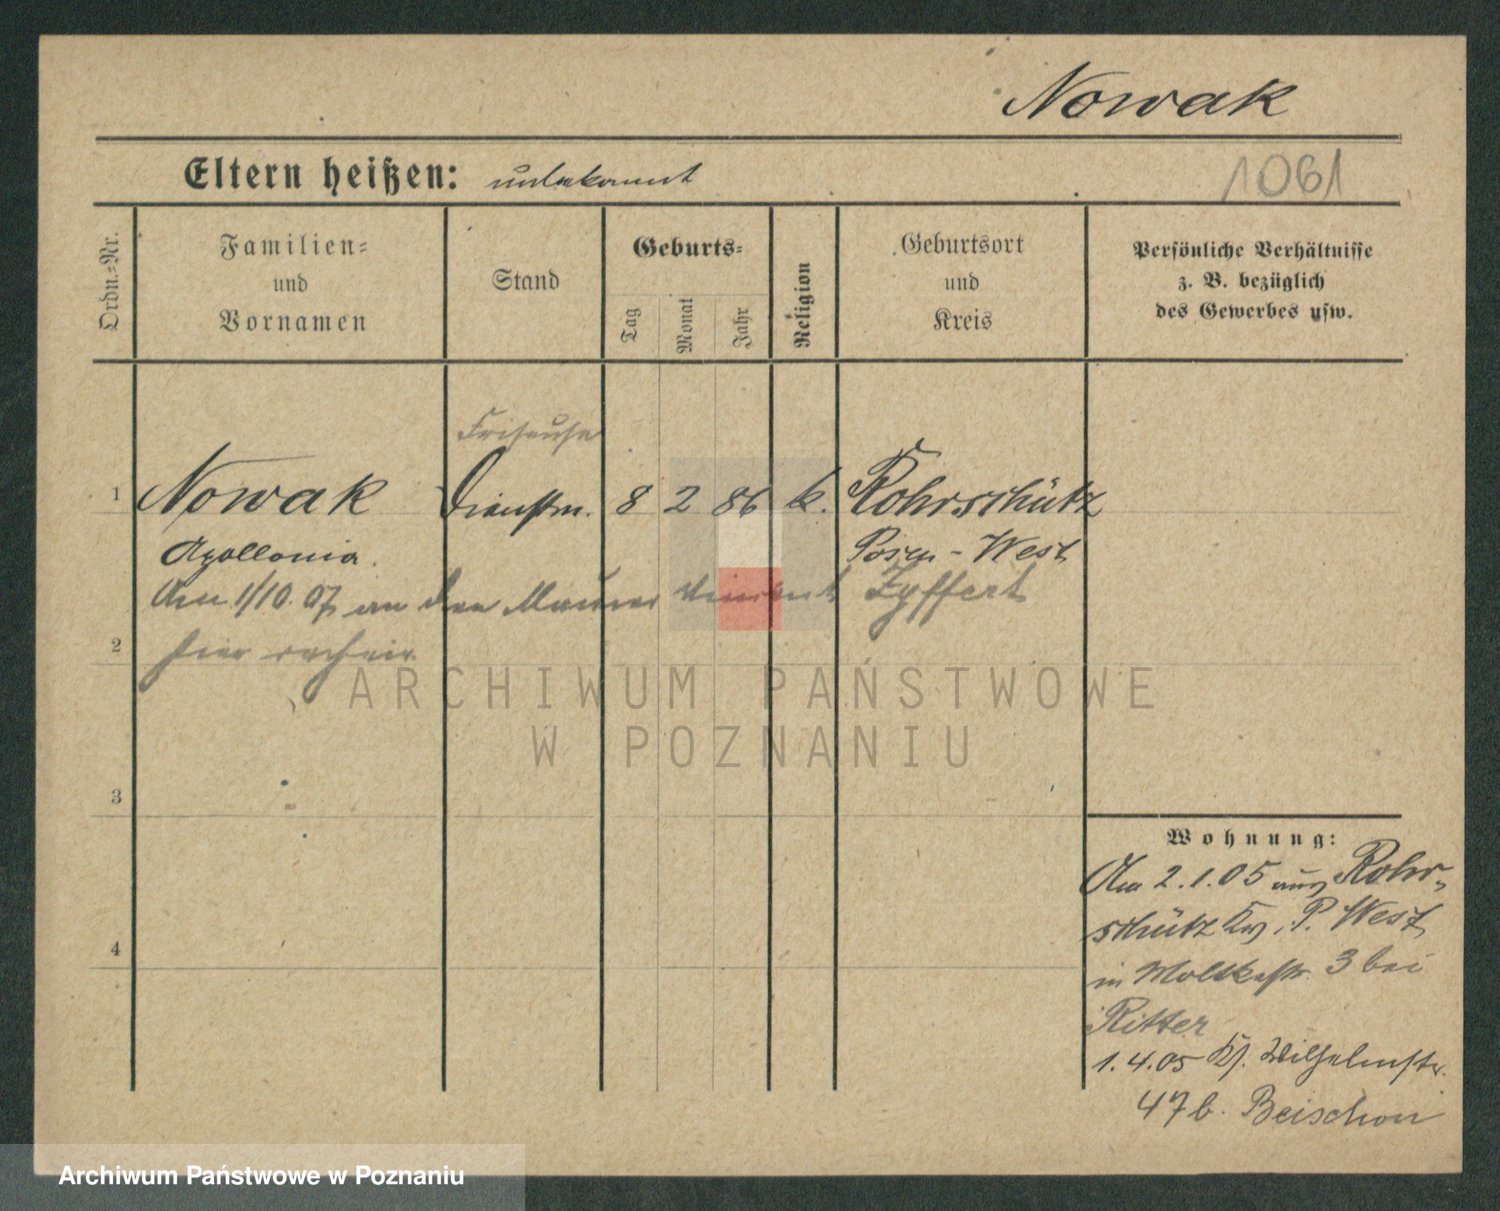 Nowak
Eltern heißen: unbekannt
1061
Ordn.=Nr.
Familien=
und
Vornamen
Stand
Geburts=
Tag
Monat
Jahr
Religion
Geburtsort
und
Kreis
Persönliche Verhältnisse
z. B. bezüglich
des Gewerbes usw.
Friseuse
1 Nowak Dienstm. 8 2 86 k. Rohrschütz
Apollonia. Posen - West
Am 1/10. 07 an den Maurer Vincent Zyffert
2 hier
ARCHIWUM PAŃSTWOWE
W POZNANIU
3
Wohnung:
Am 2.1.05 aus Rohr-
schütz P. West
4
in Moltkestr. 3 bei
Ritter
1.4.05 Wilhelmstr.
47b.
Archiwum Państwowe w Poznaniu